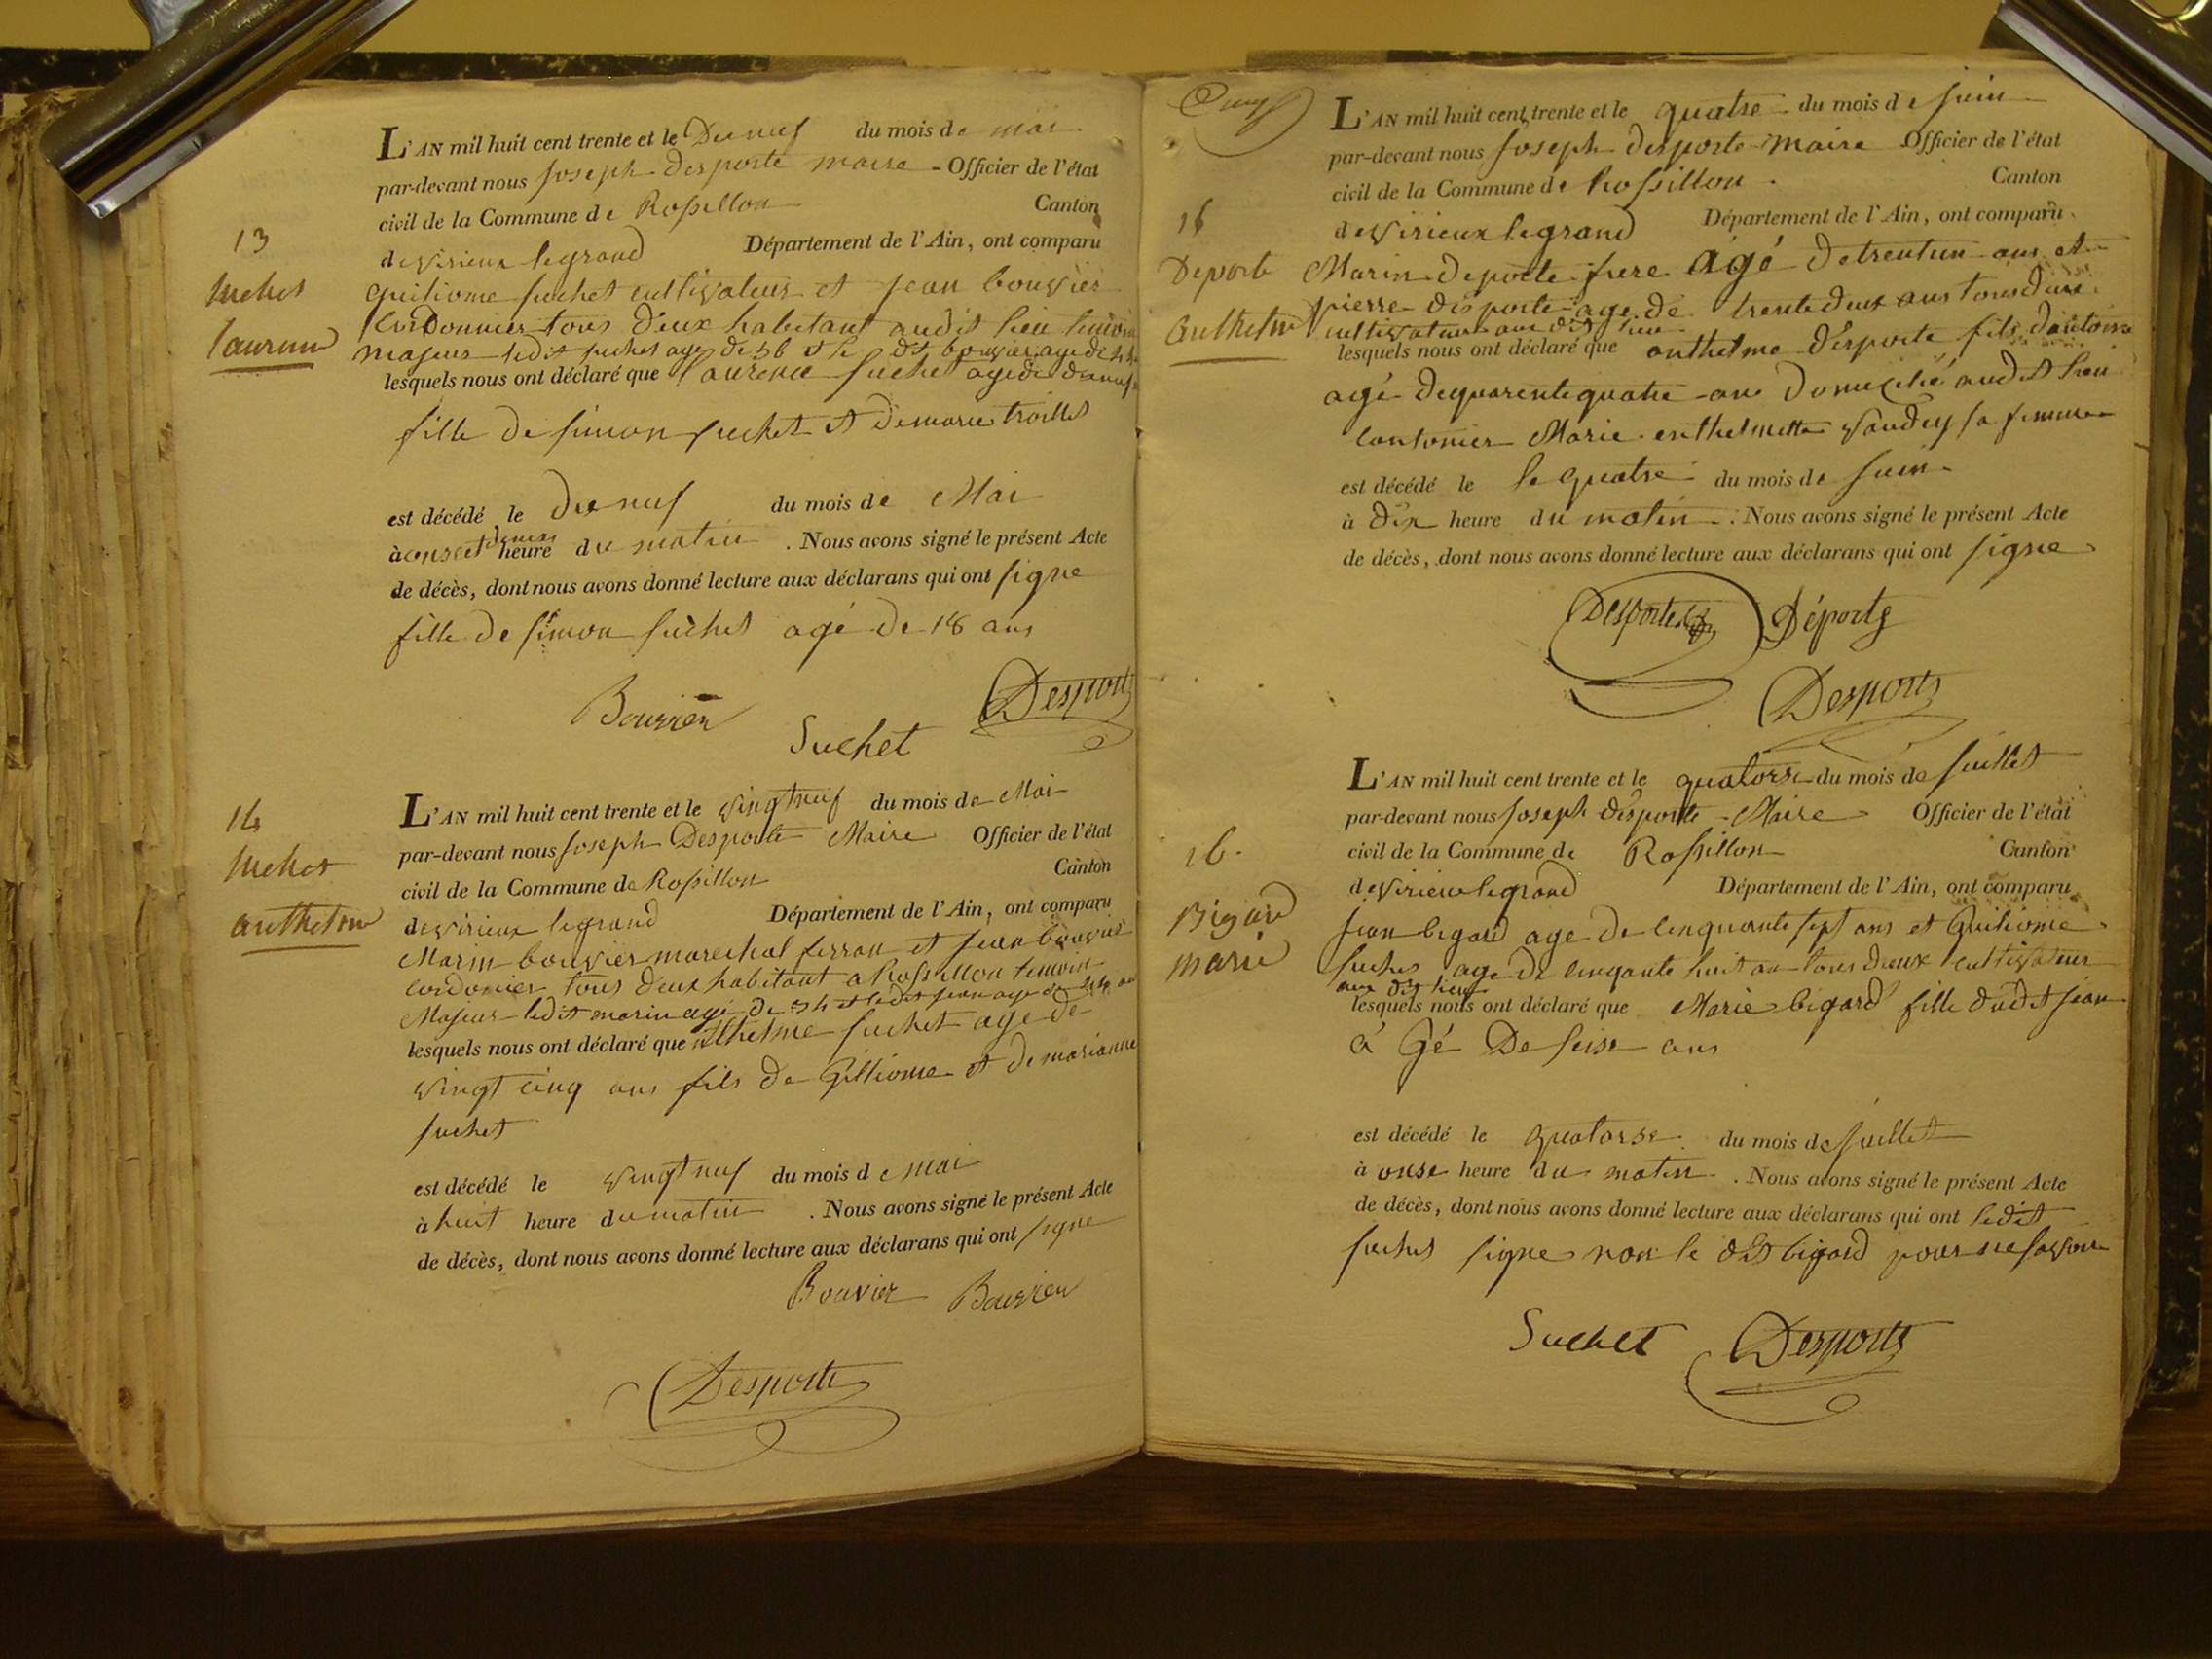 13
Suchet
Laurence
L'AN mil huit cent trente et le Dix neuf du mois de mai
par-devant nous Joseph Desporte maire - Officier de l'état
civil de la Commune de Rossillon Canton
de Virieux legrand Département de l'Ain, ont comparu
Guiliome Suchet cultivateur et Jean bouvier
Cordonnier tous deux habitant audit lieu temoin
majeur ledit suchet age de 56 et le dit bouvier age de 44
lesquels nous ont déclaré que Laurence Suchet agé de dixneuf
fille de Simon Suchet et de marie
est décédé le Dix neuf du mois de Mai
à onse et demi heure du matin . Nous avons signé le présent Acte
de décès, dont nous avons donné lecture aux déclarans qui ont signe
fille de Simon Suchet agé de 18 ans
Bouvier Suchet Desporte
14
Suchet
anthelme
L'AN mil huit cent trente et le vingt neuf du mois de Mai
par-devant nous Joseph Desporte Maire Officier de l'état
civil de la Commune de Rossillon Canton
de Virieux legrand Département de l'Ain, ont comparu
Marin bouvier marechal ferran et Jean bouvier
cordonier tous deux habitant a Rossillon temoin
Majeur ledit marin agé de 34 et ledit jean age de 44 an
lesquels nous ont déclaré que anthelme Suchet age de
vingt cinq ans fils de Gilliome et de marianne
suchet
est décédé le vingt neuf du mois de mai
à huit heure du matin . Nous avons signé le présent Acte
de décès, dont nous avons donné lecture aux déclarans qui ont signe
Bouvier Bouvier
Desporte
15
Deporte
anthelme
L'AN mil huit cent trente et le quatre du mois de Juin
par-devant nous Joseph desporte Maire Officier de l'état
civil de la Commune de Rossillon Canton
de Virieux legrand Département de l'Ain, ont comparu
Marin deporte frere Agé de trentun ans et
pierre desporte age de trente deux ans tous deux
cultivateur au dit lieu
lesquels nous ont déclaré que anthelme desporte fils dantoine
agé de quarente quatre ans Domicilié audit lieu
cantonier Marie enthelmette vaudey sa femme
est décédé le le quatre du mois de Juin
à dix heure du matin . Nous avons signé le présent Acte
de décès, dont nous avons donné lecture aux déclarans qui ont signe
Desporte Déporte
Desporte
16.
Bigard
marie
L'AN mil huit cent trente et le quatorse du mois de Juillet
par-devant nous Joseph desporte Maire Officier de l'état
civil de la Commune de Rossillon Canton
de Virieu legrand Département de l'Ain, ont comparu
Jean bigard age de cinquante sept ans et Guiliome
Suchet age de cinqante huit an tous deux cultivateur
au dit lieu
lesquels nous ont déclaré que Marie bigard fille dudit Jean
à Gé De seise ans
est décédé le quatorse du mois de Juillet
à onse heure du matin . Nous avons signé le présent Acte
de décès, dont nous avons donné lecture aux déclarans qui ont ledit
suchet signe non le dit bigard pour ne savoir
Suchet Desporte